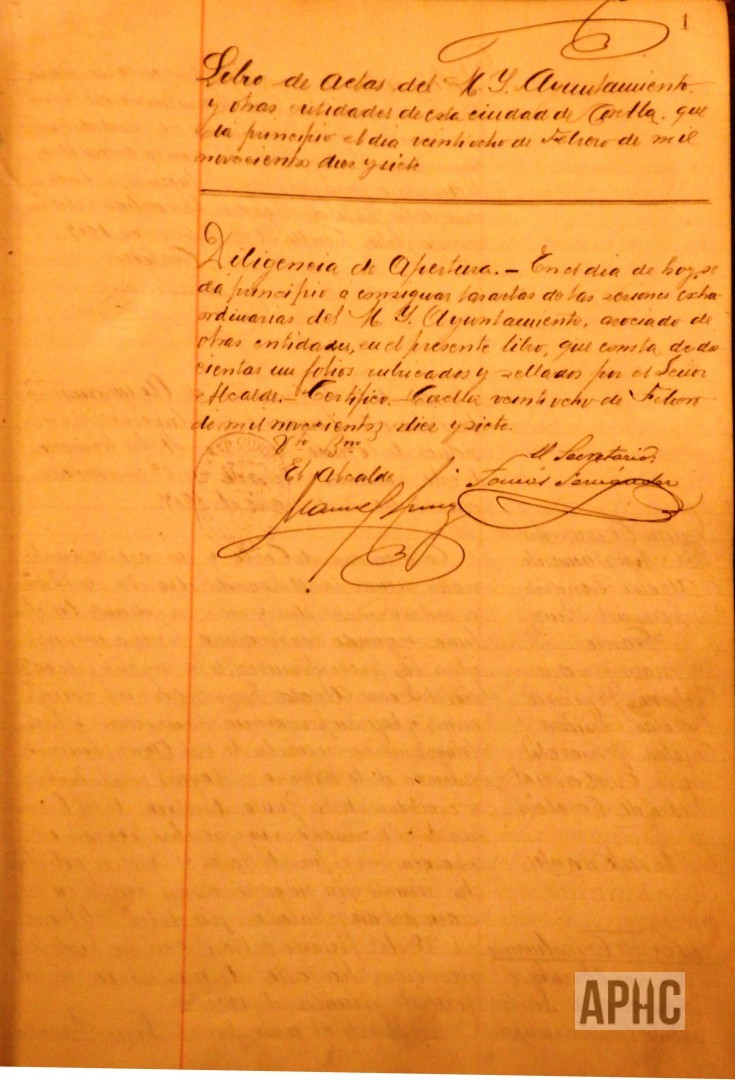 1
Libro de Actas del M. Y. Ayuntamiento
y otras entidades de esta ciudad de Corella, que
da principio el dia veintiocho de Febrero de mil
novecientos diez y siete
Diligencia de Apertura. - En el dia de hoy, se
da principio a consignar las actas de las sesiones extra-
ordinarias del M. Y. Ayuntamiento, asociado de
otras entidades, en el presente libro, que consta de do-
cientos un folios rubricados y sellados por el Señor
Alcalde. - Certifico. - Corella veintiocho de Febrero
de mil novecientos diez y siete.
Vto Bno
El Alcalde
Manuel
El Secretario
Tomás
APHC